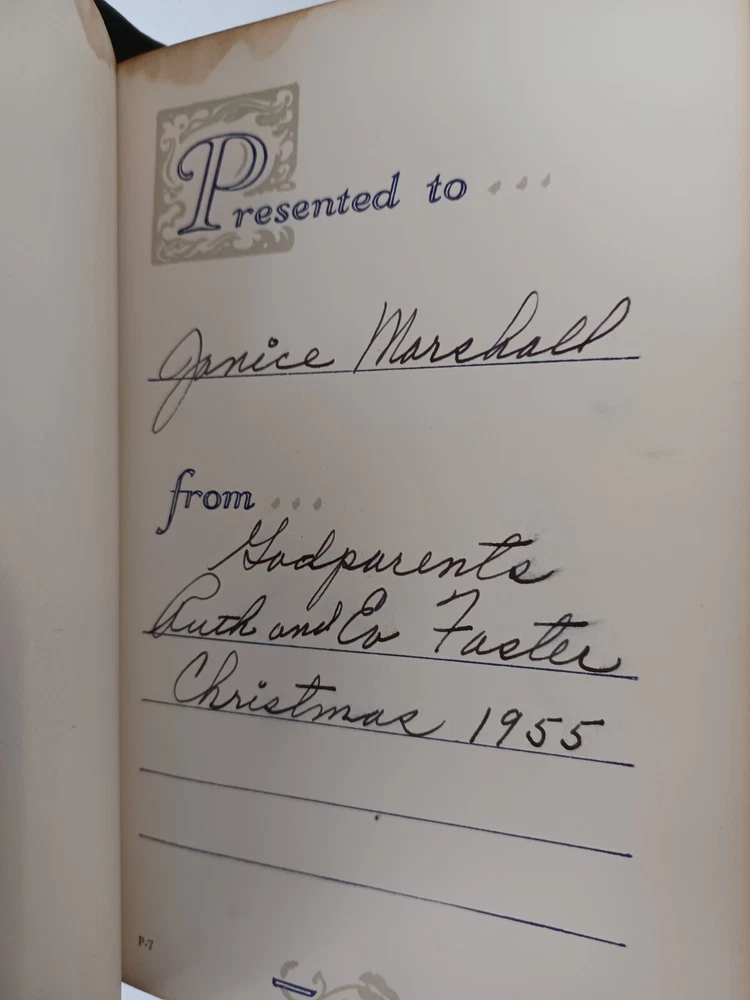 Presented to ...
Janice Marshall
from ...
Godparents
Ruth and Ev Foster
Christmas 1955
P-7